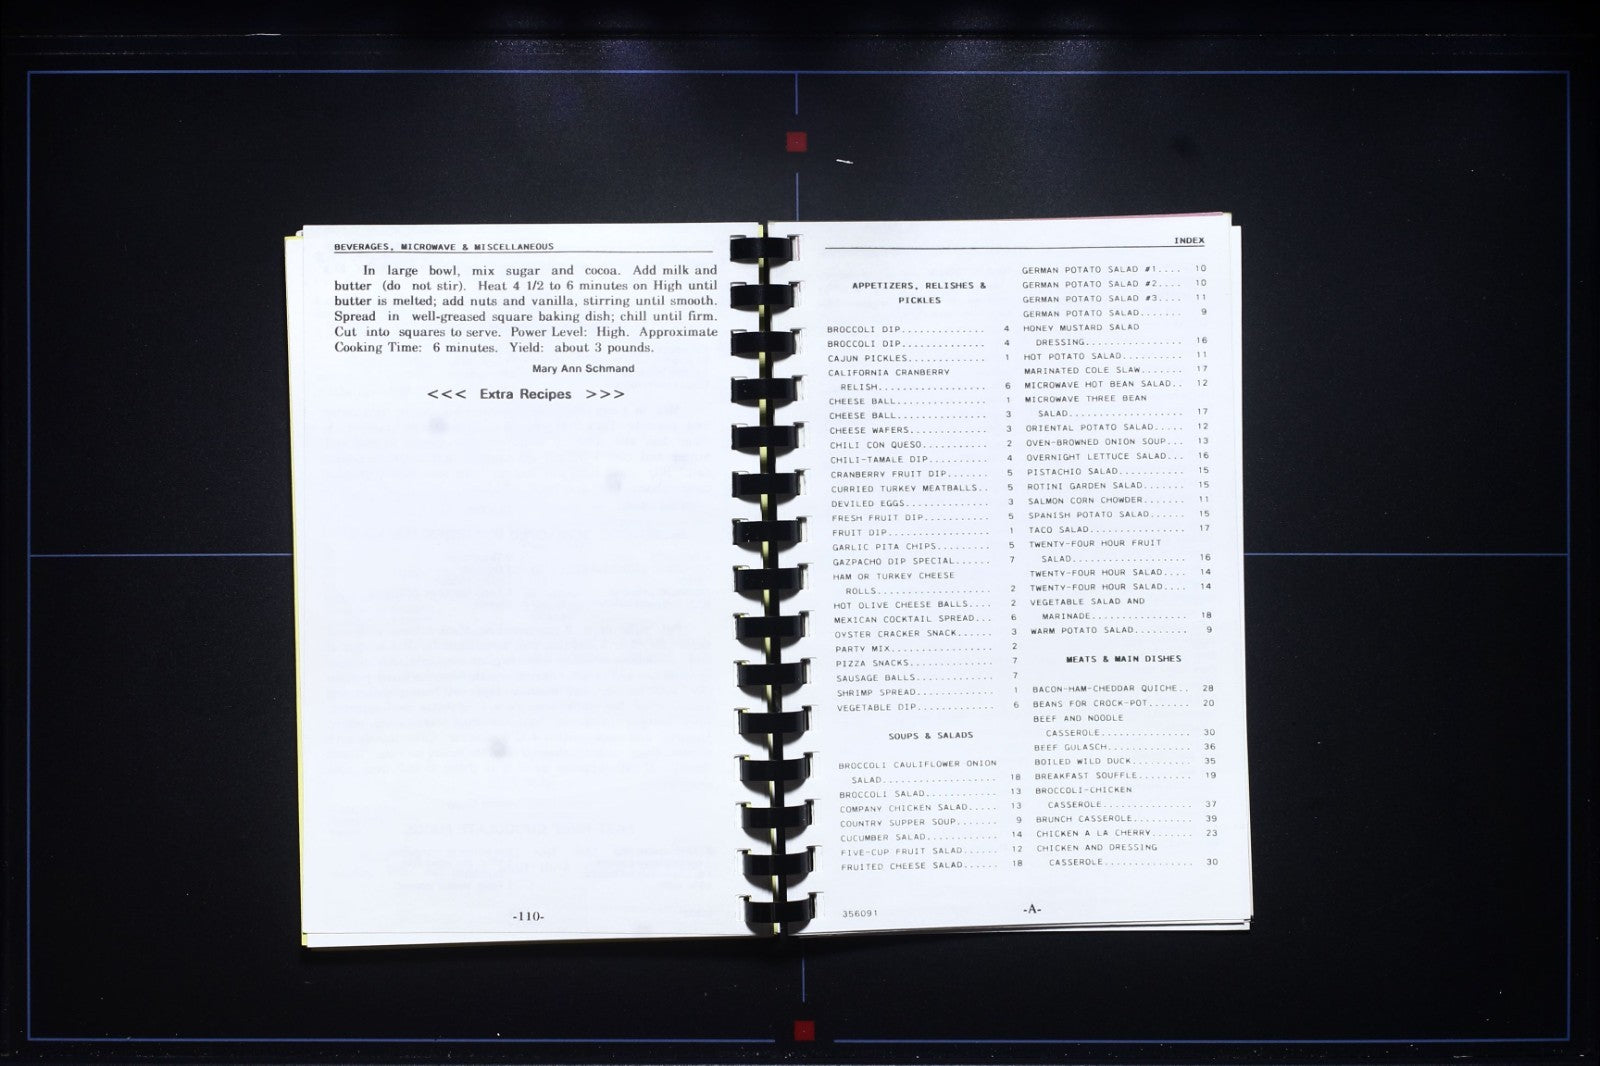 BEVERAGES, MICROWAVE & MISCELLANEOUS
In large bowl, mix sugar and cocoa. Add milk and
butter (do not stir). Heat 4 1/2 to 6 minutes on High until
butter is melted; add nuts and vanilla, stirring until smooth.
Spread in well-greased square baking dish; chill until firm.
Cut into squares to serve. Power Level: High. Approximate
Cooking Time: 6 minutes. Yield: about 3 pounds.
Mary Ann Schmand
<<< Extra Recipes >>>
-110-
INDEX
APPETIZERS, RELISHES &
PICKLES
BROCCOLI DIP.............. 4
BROCCOLI DIP.............. 4
CAJUN PICKLES............. 1
CALIFORNIA CRANBERRY
RELISH.................. 6
CHEESE BALL............... 1
CHEESE BALL............... 3
CHEESE WAFERS............. 3
CHILI CON QUESO........... 2
CHILI-TAMALE DIP.......... 4
CRANBERRY FRUIT DIP....... 5
CURRIED TURKEY MEATBALLS.. 5
DEVILED EGGS.............. 3
FRESH FRUIT DIP........... 5
FRUIT DIP................. 1
GARLIC PITA CHIPS......... 5
GAZPACHO DIP SPECIAL...... 7
HAM OR TURKEY CHEESE
ROLLS................... 2
HOT OLIVE CHEESE BALLS.... 2
MEXICAN COCKTAIL SPREAD... 6
OYSTER CRACKER SNACK...... 3
PARTY MIX................. 2
PIZZA SNACKS.............. 7
SAUSAGE BALLS............. 7
SHRIMP SPREAD............. 1
VEGETABLE DIP............. 6
SOUPS & SALADS
BROCCOLI CAULIFLOWER ONION
SALAD................... 18
BROCCOLI SALAD............ 13
COMPANY CHICKEN SALAD..... 13
COUNTRY SUPPER SOUP....... 9
CUCUMBER SALAD............ 14
FIVE-CUP FRUIT SALAD...... 12
FRUITED CHEESE SALAD...... 18
GERMAN POTATO SALAD #1.... 10
GERMAN POTATO SALAD #2.... 10
GERMAN POTATO SALAD #3.... 11
GERMAN POTATO SALAD....... 9
HONEY MUSTARD SALAD
DRESSING................ 16
HOT POTATO SALAD.......... 11
MARINATED COLE SLAW....... 17
MICROWAVE HOT BEAN SALAD.. 12
MICROWAVE THREE BEAN
SALAD................... 17
ORIENTAL POTATO SALAD..... 12
OVEN-BROWNED ONION SOUP... 13
OVERNIGHT LETTUCE SALAD... 16
PISTACHIO SALAD........... 15
ROTINI GARDEN SALAD....... 15
SALMON CORN CHOWDER....... 11
SPANISH POTATO SALAD...... 15
TACO SALAD................ 17
TWENTY-FOUR HOUR FRUIT
SALAD................... 16
TWENTY-FOUR HOUR SALAD.... 14
TWENTY-FOUR HOUR SALAD.... 14
VEGETABLE SALAD AND
MARINADE................ 18
WARM POTATO SALAD......... 9
MEATS & MAIN DISHES
BACON-HAM-CHEDDAR QUICHE.. 28
BEANS FOR CROCK-POT....... 20
BEEF AND NOODLE
CASSEROLE............... 30
BEEF GULASCH.............. 36
BOILED WILD DUCK.......... 35
BREAKFAST SOUFFLE......... 19
BROCCOLI-CHICKEN
CASSEROLE............... 37
BRUNCH CASSEROLE.......... 39
CHICKEN A LA CHERRY....... 23
CHICKEN AND DRESSING
CASSEROLE............... 30
356091
-A-